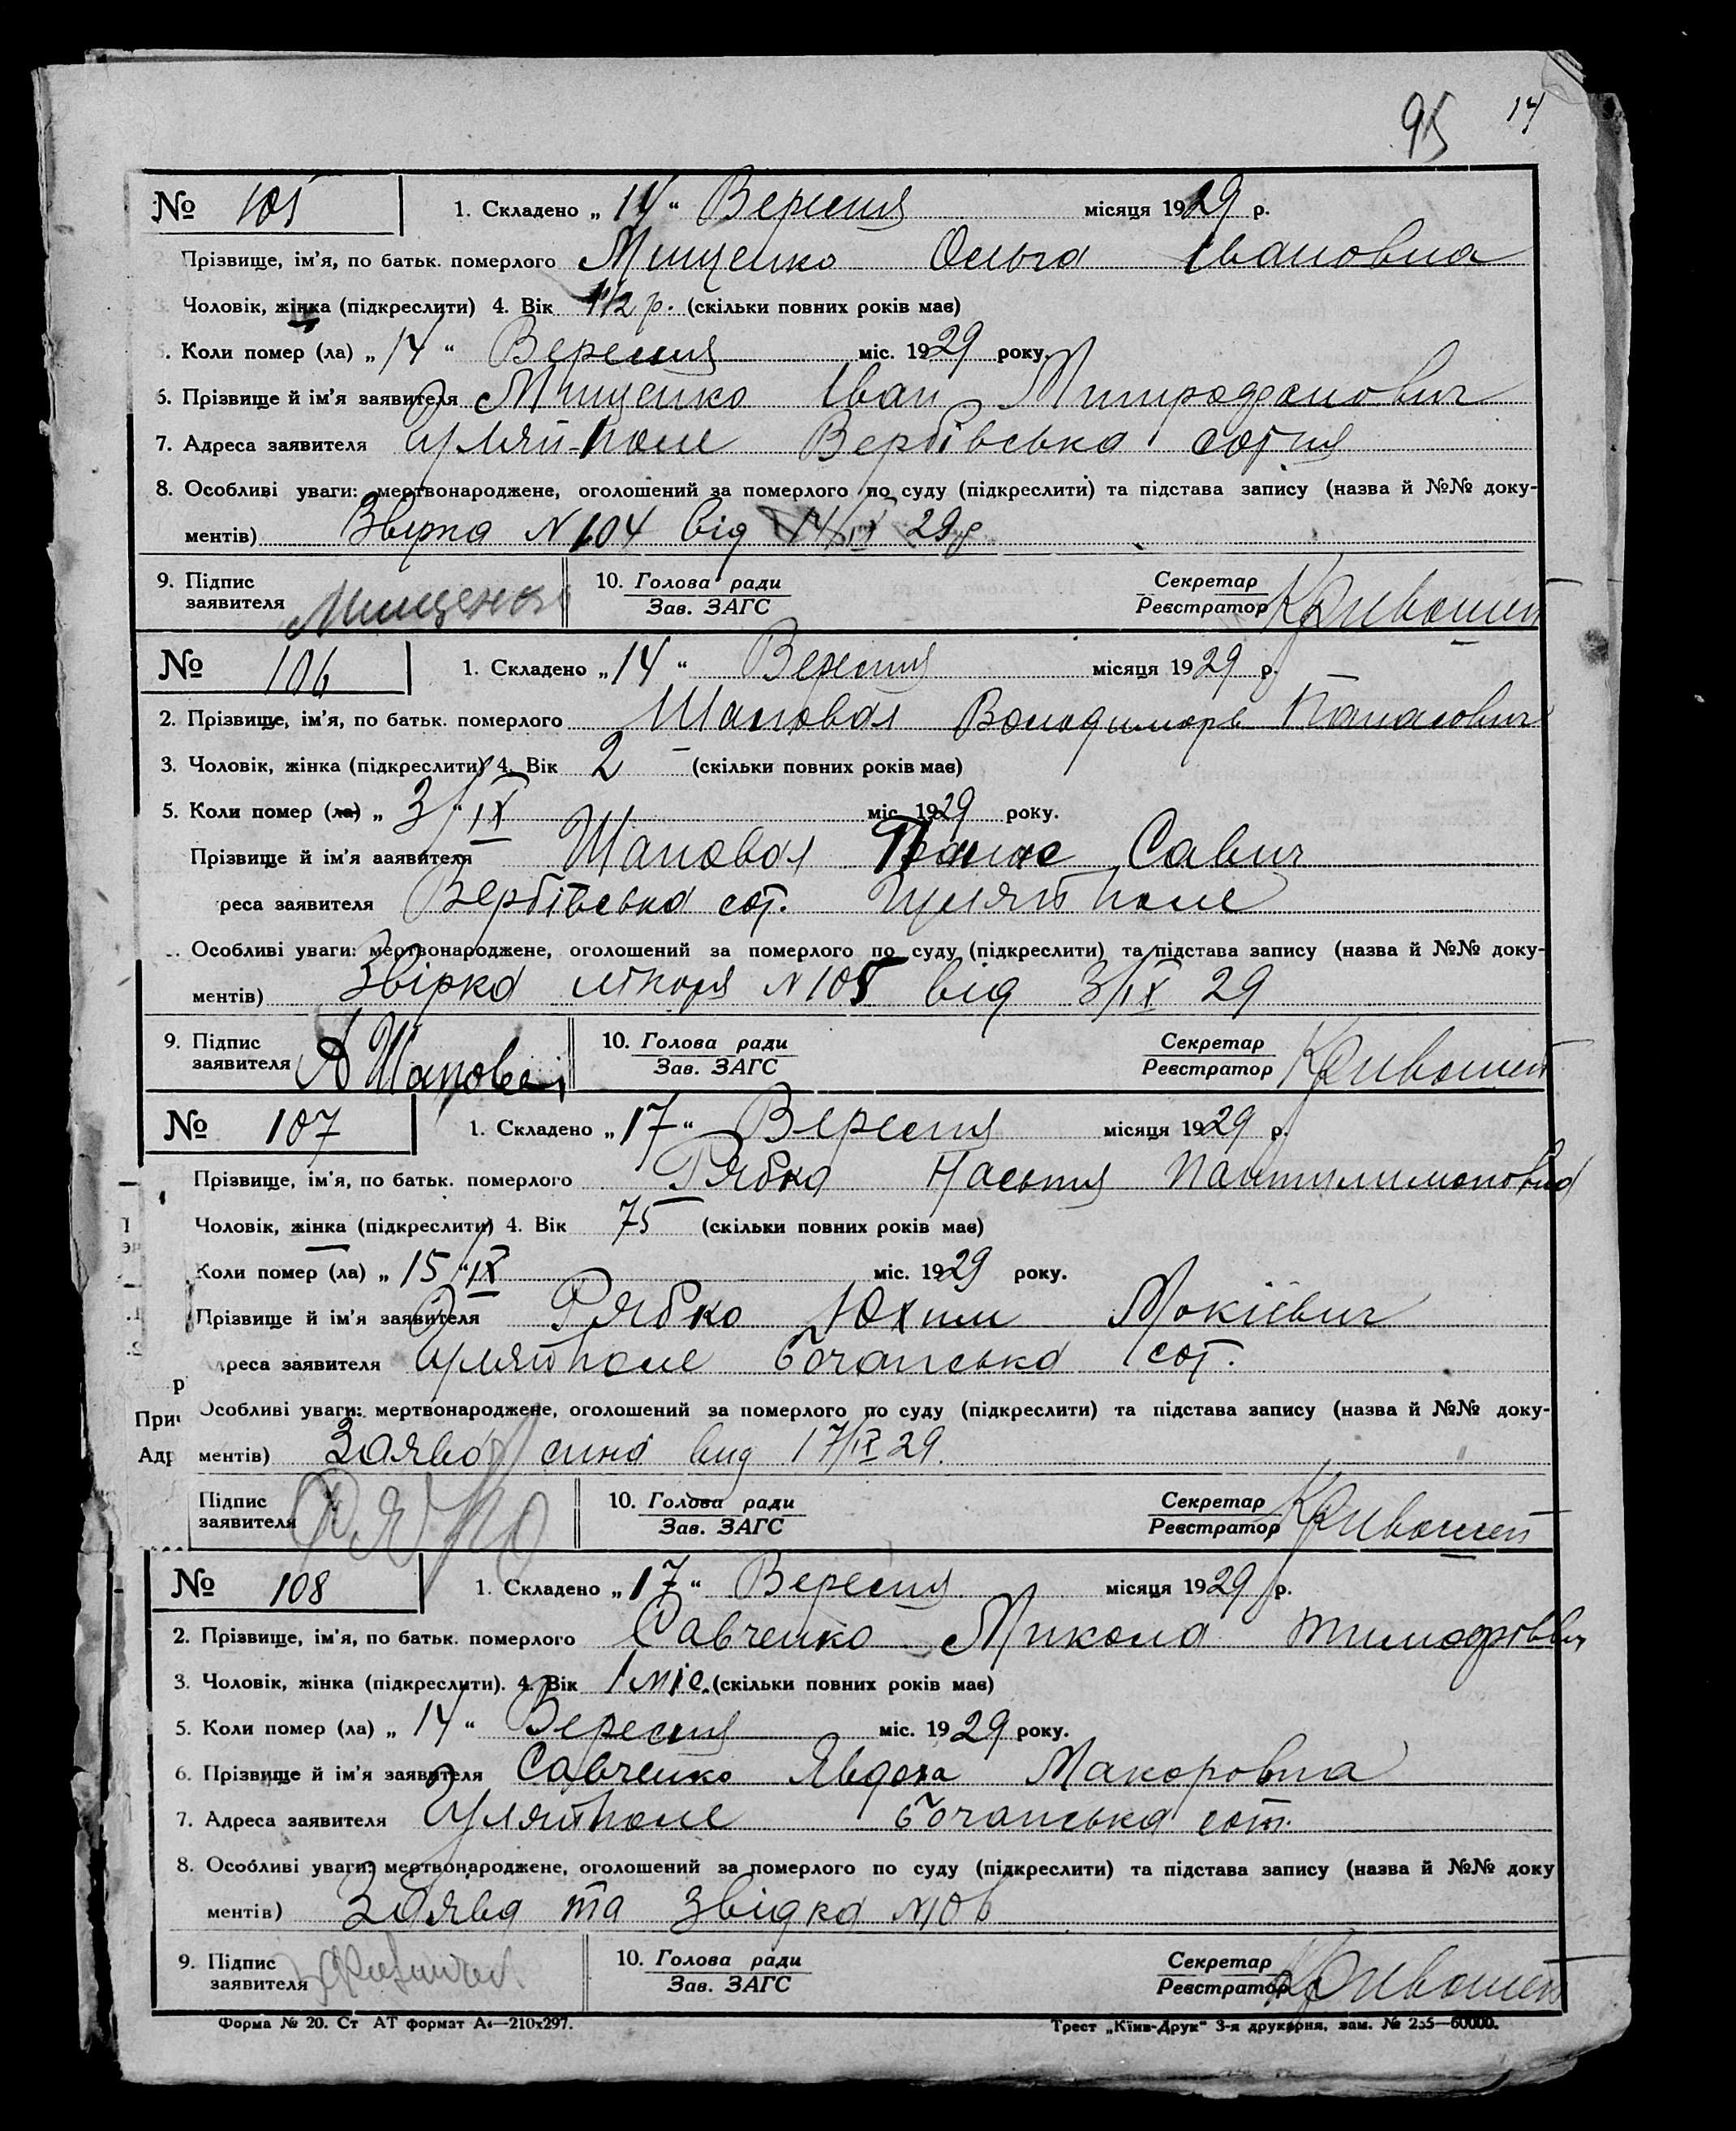 95 14
№ 105 1. Складено „14“ Вересня місяця 1929 р.
Прізвище, ім’я, по батьк. померлого Мищенко Ольга Івановна
Чоловік, жінка (підкреслити) 4. Вік 1/2 р. (скільки повних років має)
. Коли помер (ла) „14“ Вересня міс. 1929 року.
6. Прізвище й ім’я заявителя Мищенко Іван
7. Адреса заявителя Гуляй-поле Вербівська сотня
8. Особливі уваги: мертвонароджене, оголошений за померлого по суду (підкреслити) та підстава запису (назва й №№ доку-
ментів) N 104 від 14/IX 29р
9. Підпис заявителя Мищенко 10. Голова ради Зав. ЗАГС Секретар Реєстратор Кривошей
№ 106 1. Складено „14“ Вересня місяця 1929 р.
2. Прізвище, ім’я, по батьк. померлого Шаповал Володимирь Панасович
3. Чоловік, жінка (підкреслити) 4. Вік 2 (скільки повних років має)
5. Коли помер (ла) „3/“IX міс. 1929 року.
Прізвище й ім’я заявителя Шаповал Панас Савич
реса заявителя Вербівська сот. Гуляй поле
Особливі уваги: мертвонароджене, оголошений за померлого по суду (підкреслити) та підстава запису (назва й №№ доку-
ментів) Звірка лікаря N 105 від 3/IX 29
9. Підпис заявителя А Шаповал 10. Голова ради Зав. ЗАГС Секретар Реєстратор Кривошей
№ 107 1. Складено „17“ Вересня місяця 1929 р.
Прізвище, ім’я, по батьк. померлого Рябка Настя
Чоловік, жінка (підкреслити) 4. Вік 75 (скільки повних років має)
Коли помер (ла) „15/“IX міс. 1929 року.
Прізвище й ім’я заявителя Рябко Юхим Мокієвич
дреса заявителя Гуляй поле Бочанська сот.
р
При
Особливі уваги: мертвонароджене, оголошений за померлого по суду (підкреслити) та підстава запису (назва й №№ доку-
Адр
ментів) Заява сина вид 17/IX 29.
Підпис заявителя Рябко 10. Голова ради Зав. ЗАГС Секретар Реєстратор Кривошей
№ 108 1. Складено „17“ Вересня місяця 1929 р.
2. Прізвище, ім’я, по батьк. померлого Савченко Микола
3. Чоловік, жінка (підкреслити). 4. Вік 1 міс. (скільки повних років має)
5. Коли помер (ла) „14“ Вересня міс. 1929 року.
6. Прізвище й ім’я заявителя Савченко Явдоха Макаровна
7. Адреса заявителя Гуляй поле Бочанська сот.
8. Особливі уваги: мертвонароджене, оголошений за померлого по суду (підкреслити) та підстава запису (назва й №№ доку
ментів) Заява та звідка N 106
9. Підпис заявителя 10. Голова ради Зав. ЗАГС Секретар Реєстратор Кривошей
Форма № 20. Ст АТ формат А4—210х297. Трест „Київ-Друк“ 3-я друкарня, зам. № 255—60000.